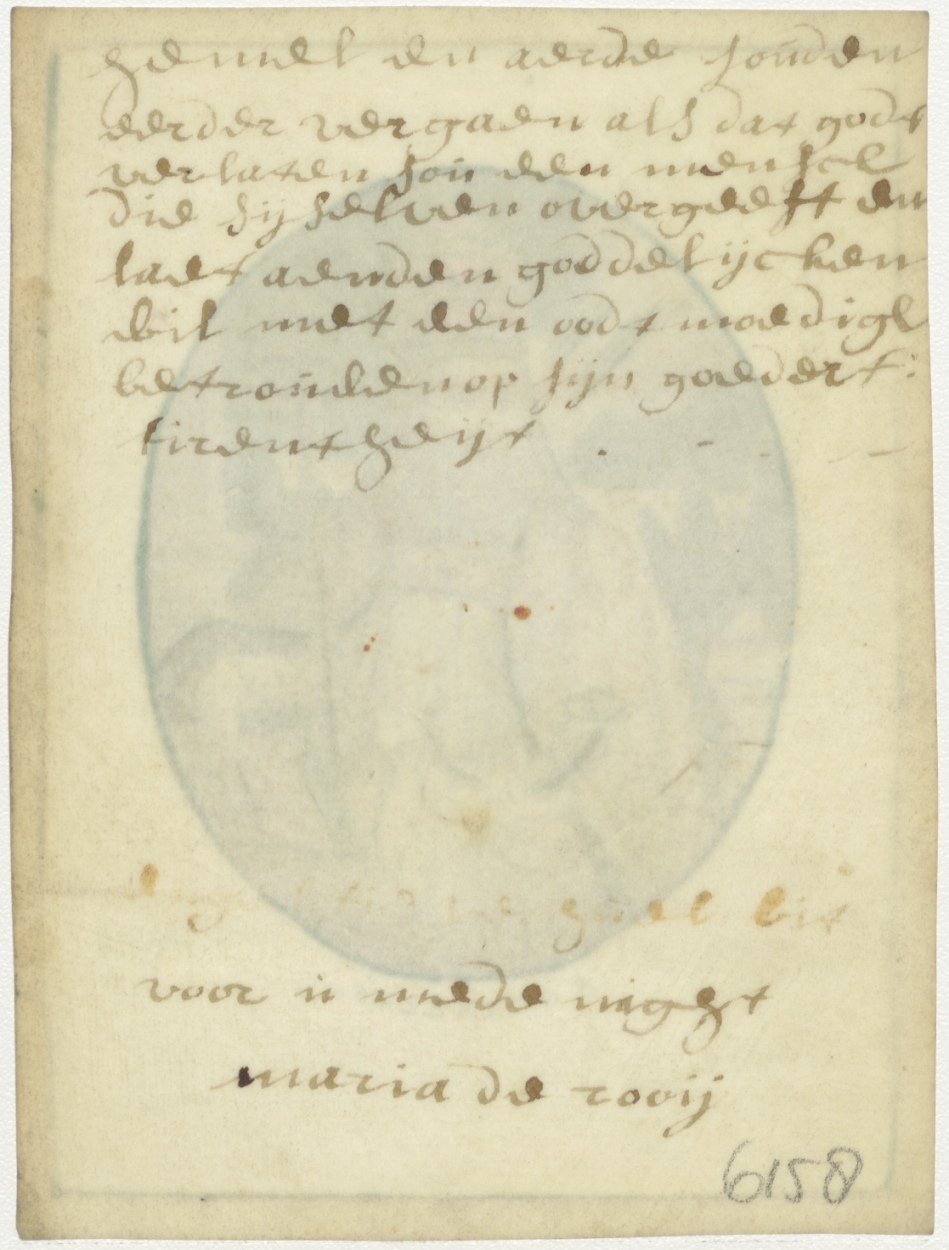 hemel en aerde souden
eerder vergaen als dat godt
verlaten sou een mensch
die sij selven over geeft en
laet aenden goddelijcken
wil met een oodtmoedigh
betrouwen op sijn goedert:
tirentheijt
bit
voor u mede night
maria de rooij
6158